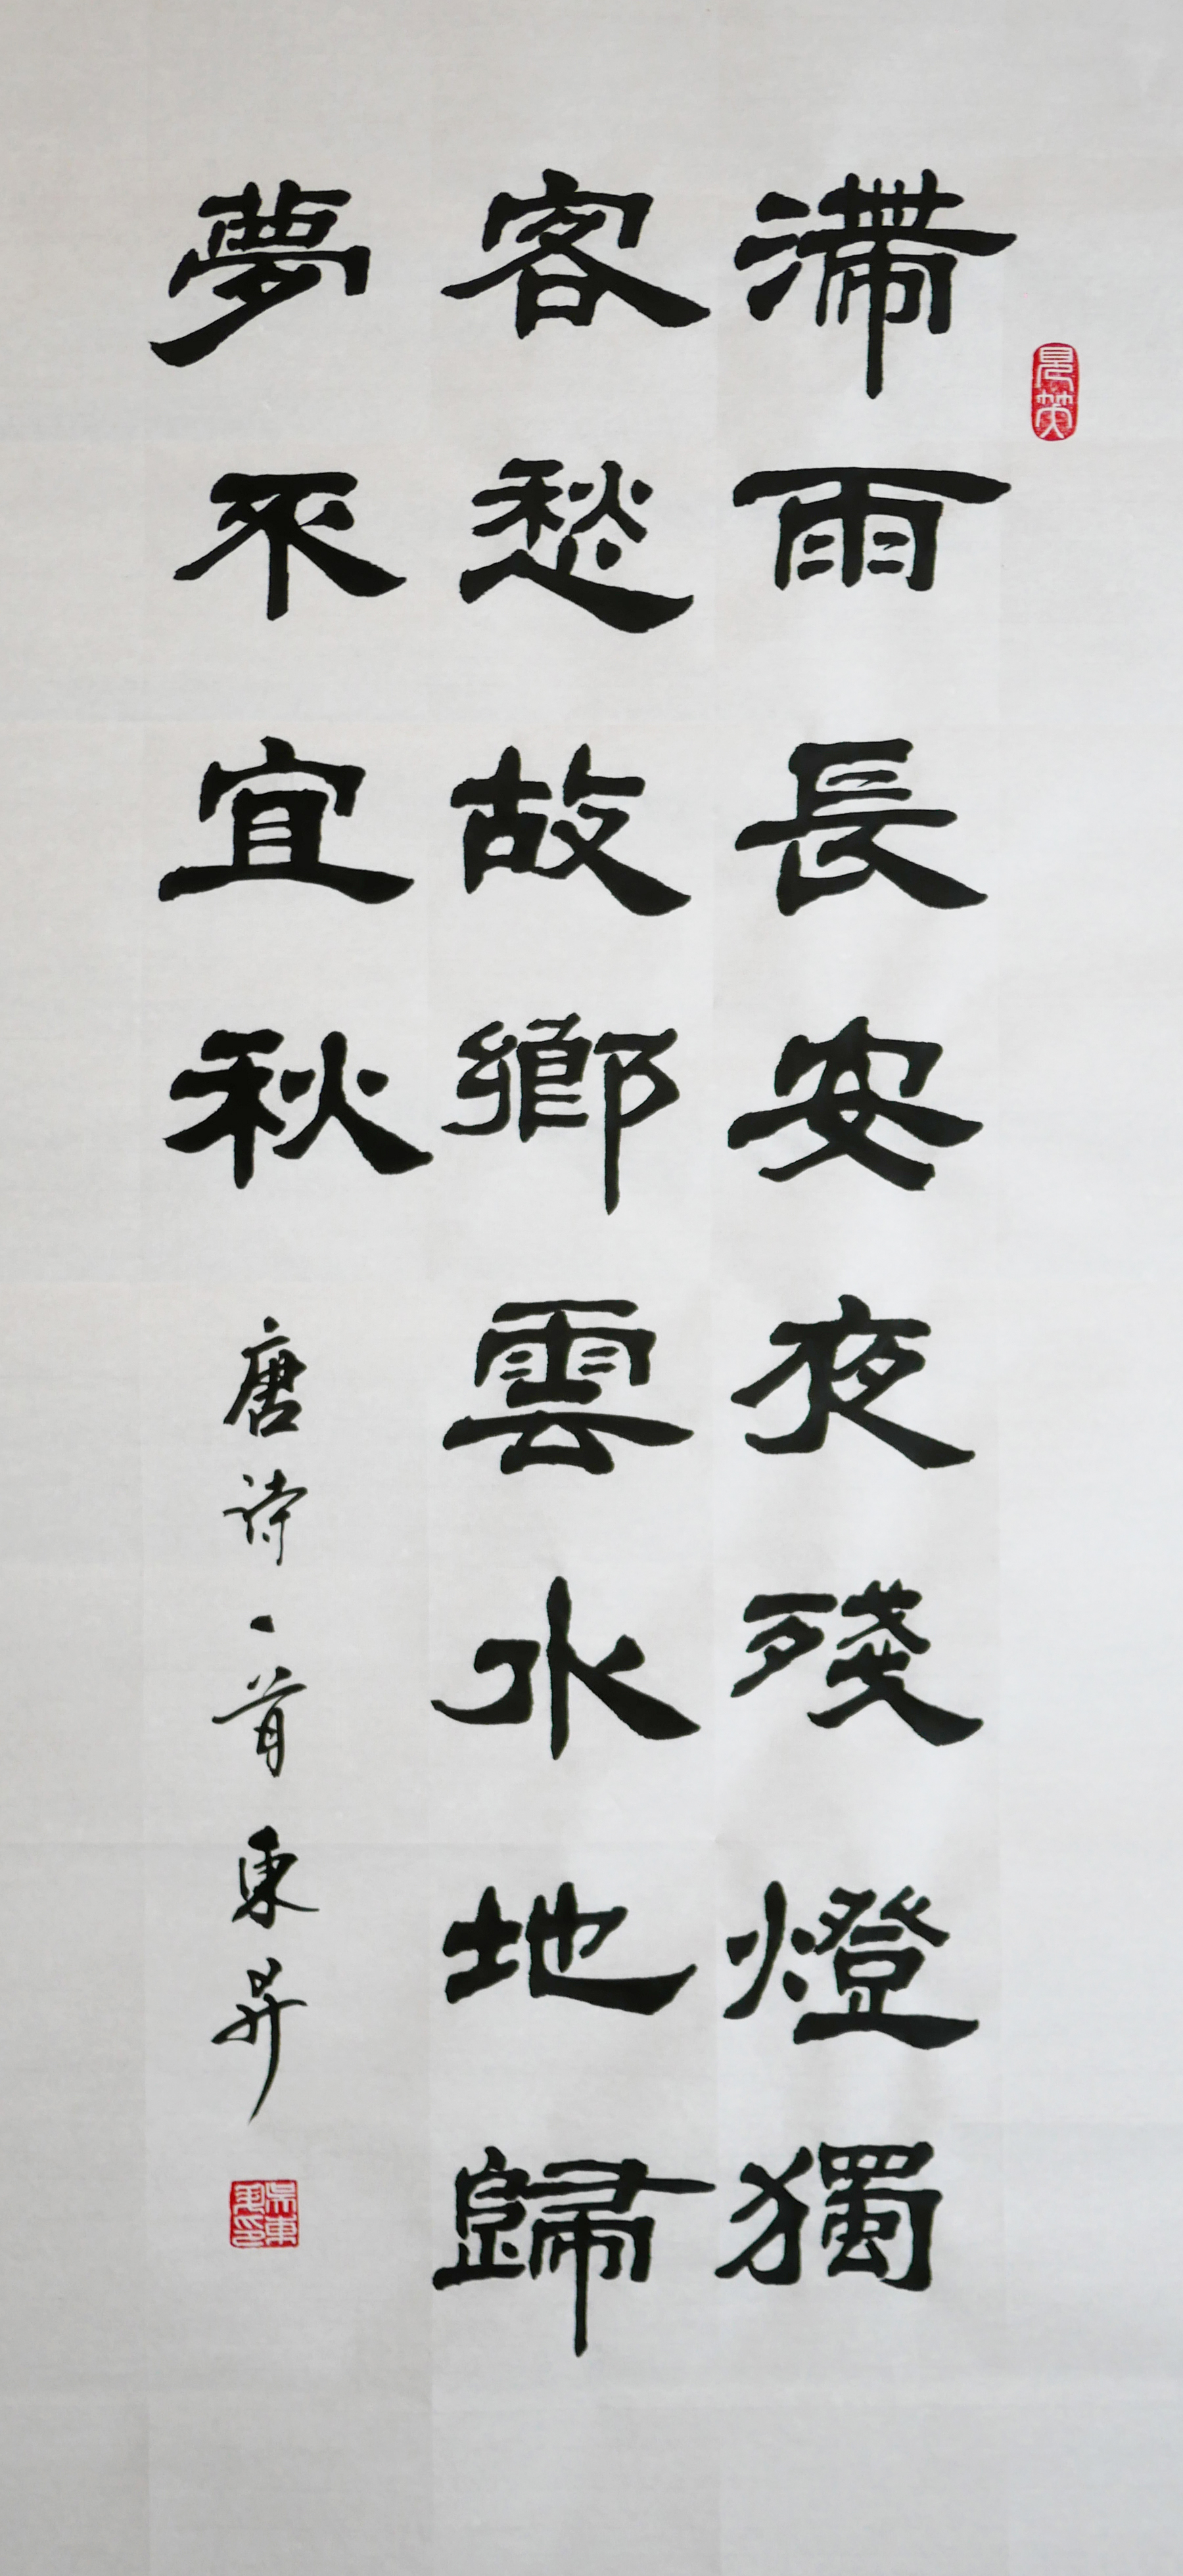 滯雨長安夜殘燈獨
客愁故鄉雲水地歸
夢不宜秋
唐诗一首東昇